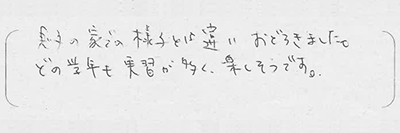 息子の家での様子とは違い おどろきました。
どの学年も実習が多く、楽しそうです。